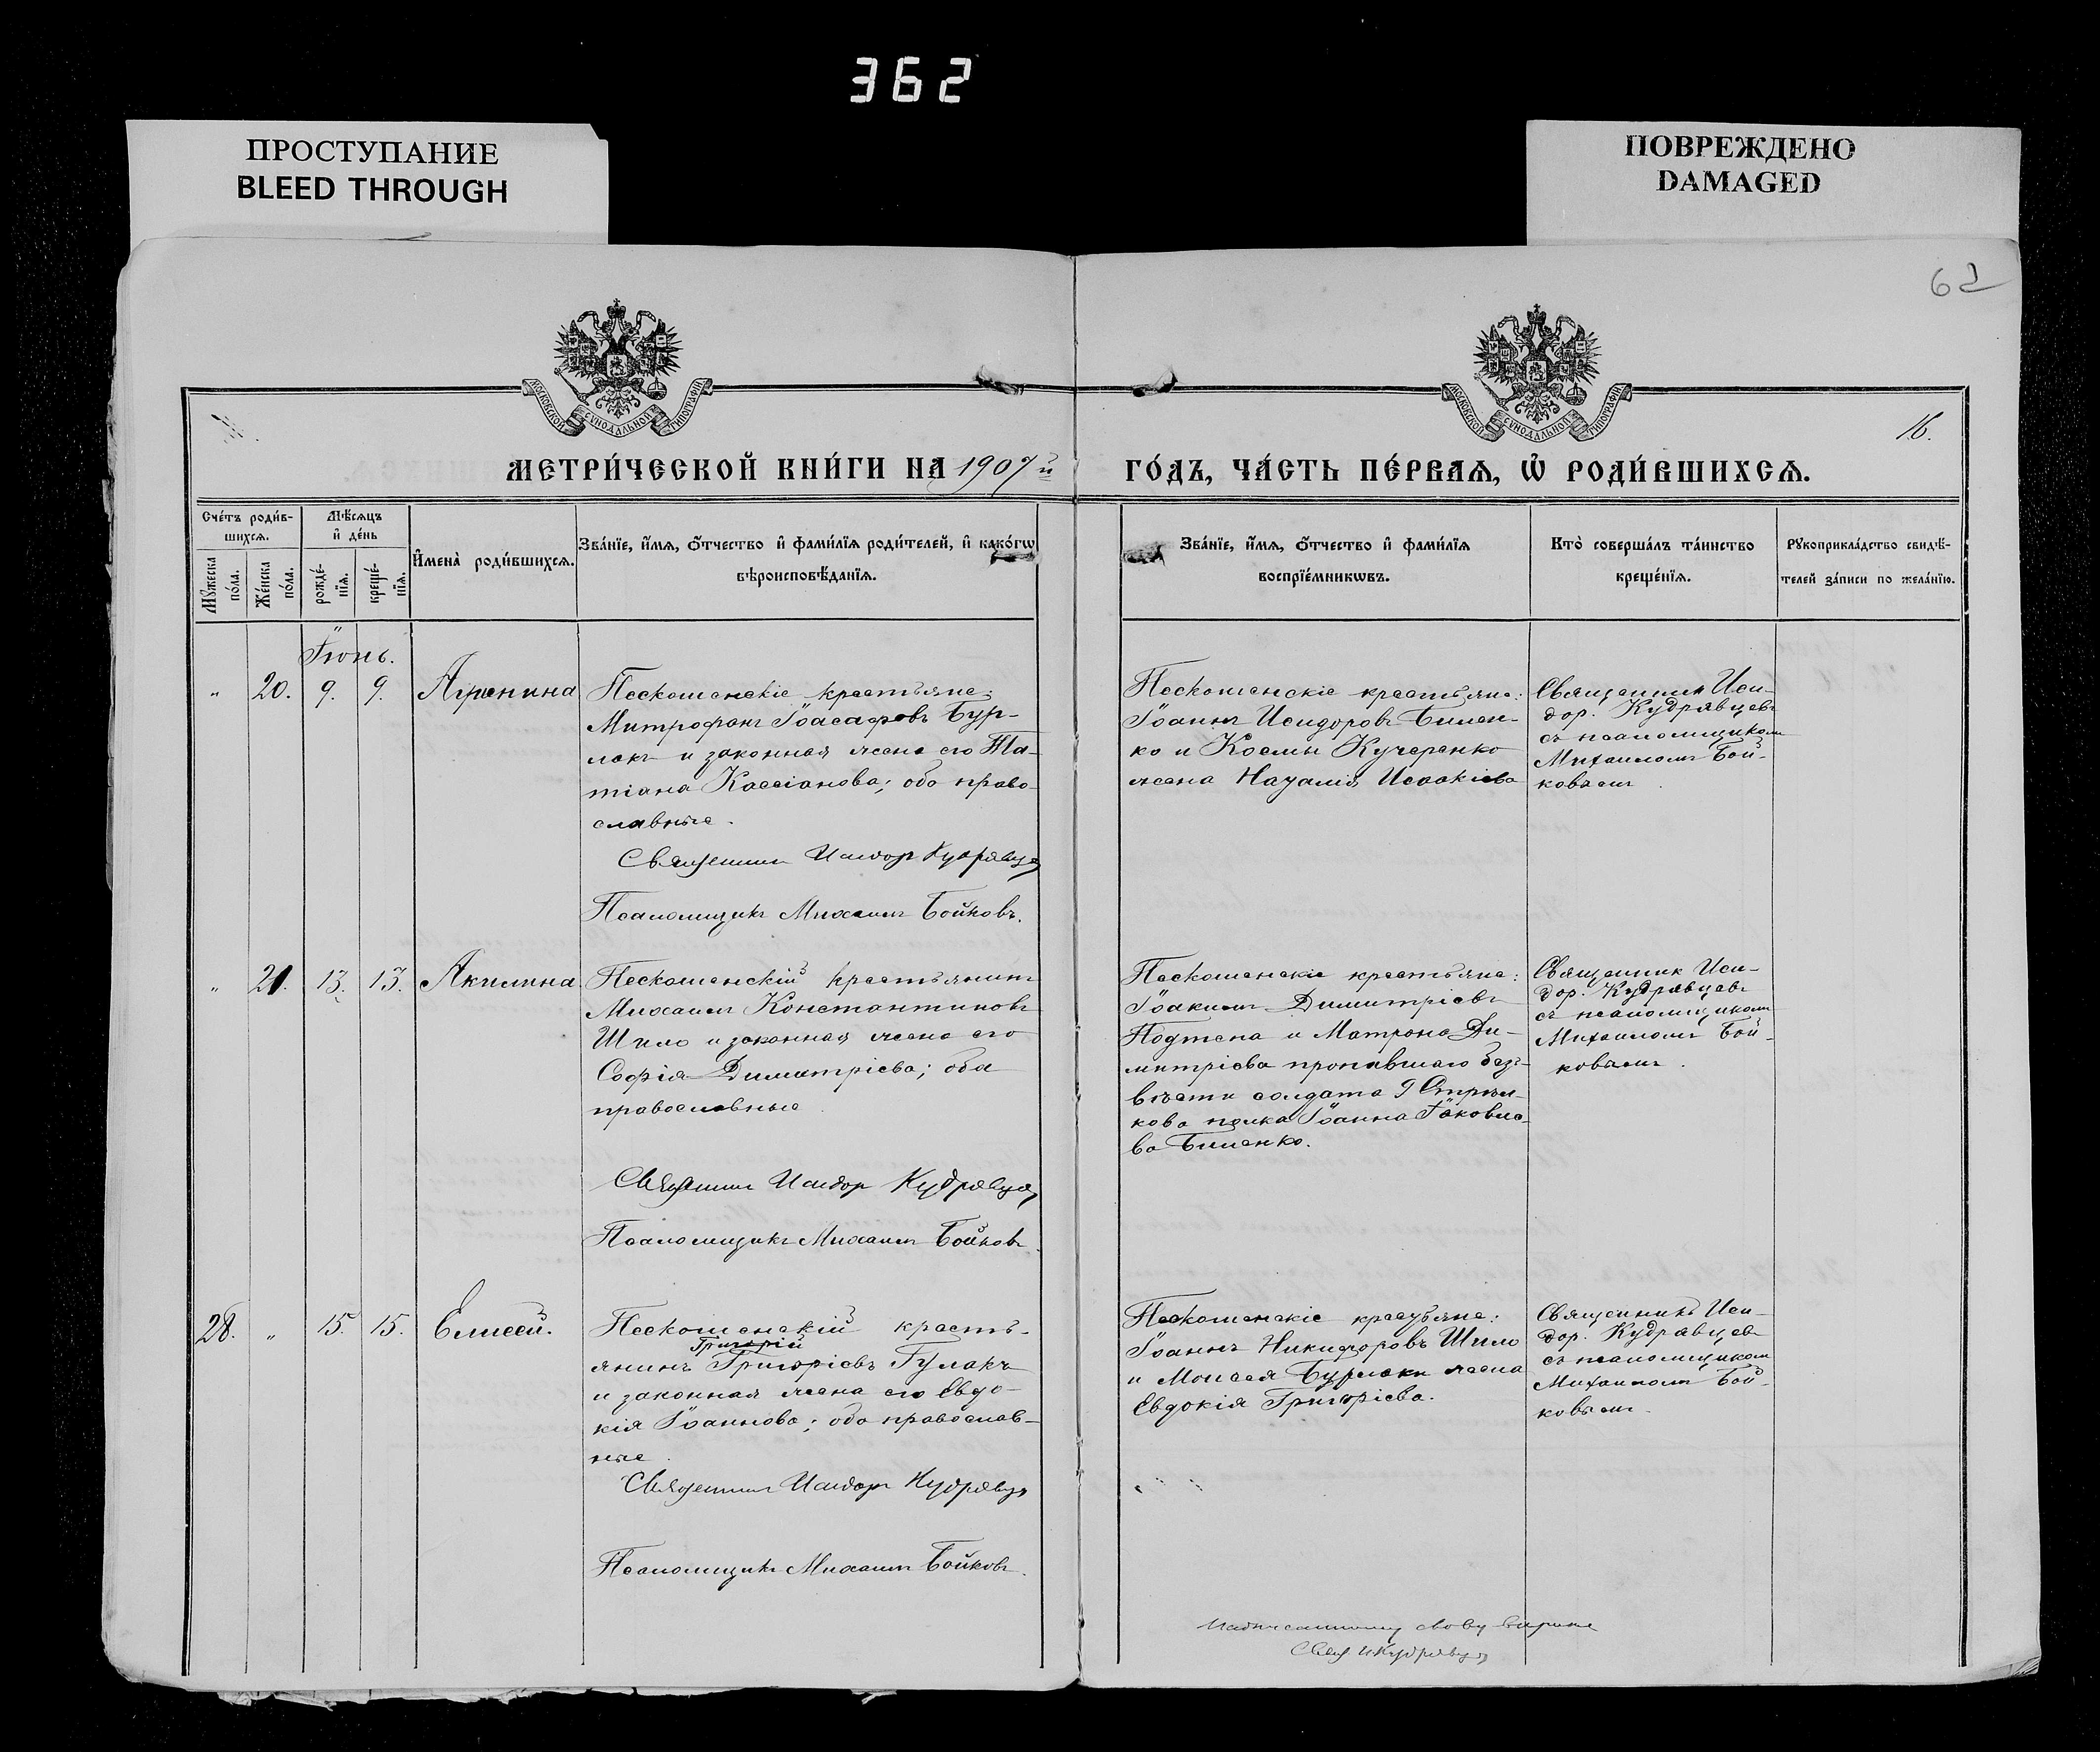 362
ПРОСТУПАНИЕ
BLEED THROUGH
ПОВРЕЖДЕНО
DAMAGED
62
МОСКОВСКОЙ СѴНОДАЛЬНОЙ ТИПОГРАФІИ
МОСКОВСКОЙ СѴНОДАЛЬНОЙ ТИПОГРАФІИ
16.
МЕТРИ́ЧЕСКОЙ КНИ́ГИ НА 1907 й
ГО́ДЪ, ЧА́СТЬ ПЕ́РВАѦ, Ѿ РОДИ́ВШИХСѦ.
Сче́тъ роди́в-
шихсѧ.
Мꙋжеска по́ла.
Же́нска по́ла.
Мѣ́сѧцъ
и҆ де́нь
рожде́-нїѧ.
креще́-нїѧ.
И҆мена̀ роди́вшихсѧ.
Зва́нїе, и҆́мѧ, ѻ҆́тчество и҆ фами́лїѧ роди́телей, и҆ како́гѡ
вѣроисповѣ́данїѧ.
Зва́нїе, и҆́мѧ, ѻ҆́тчество и҆ фами́лїѧ
воспрїе́мникѡвъ.
Кто̀ соверша́лъ та́инство
креще́нїѧ.
Рꙋкоприкла́дство свидѣ́-
телей за́писи по жела́нїю.
Іюнь.
" 20. 9. 9. Агрипина
Пескошенскіе крестьяне:
Митрофанъ Іоасафовъ Бур-
лакъ и законная жена его Та-
тіана Кассіанова; оба право-
славные.
Священник Исидор Кудрявцев
Псаломщикъ Михаилъ Бойковъ.
Пескошенскіе крестьяне:
Іоаннъ Исидоровъ Билен-
ко и Космы Кучеренко
жена Наталія Исаакіева
Священник Иси-
дор. Кудрявцевъ
съ псаломщиком
Михаиломъ Бой-
ковымъ.
" 21. 13. 13. Акилина
Пескошенскій крестьянинъ
Михаилъ Константиновъ
Шило и законная жена его
Софія Димитріева; оба
православные.
Священник Исидор Кудрявцев
Псаломщикъ Михаилъ Бойковъ.
Пескошенскіе крестьяне:
Іоакимъ Димитріевъ
Подтепа и Матрона Ди-
митріева пропавшаго безъ
вѣсти солдата 9 Стрѣл-
кова полка Іоанна Іаковле-
ва Биленко.
Священник Иси-
дор. Кудрявцевъ
съ псаломщиком
Михаиломъ Бой-
ковымъ.
28. " 15. 15. Елисей.
Пескошенскій кресть-
Григорій
янинъ Григоріевъ Гулакъ
и законная жена его Евдо-
кія Іоаннова; оба православ-
ные.
Священник Исидор Кудрявцев
Псаломщикъ Михаилъ Бойковъ.
Пескошенскіе крестьяне:
Іоаннъ Никифоровъ Шило
и Моисея Бурлаки жена
Евдокія Григоріева.
Священникъ Иси-
дор. Кудрявцевъ
съ псаломщиком
Михаиломъ Бой-
ковымъ.
Надписанному слову верить
Свящ И Кудрявцев